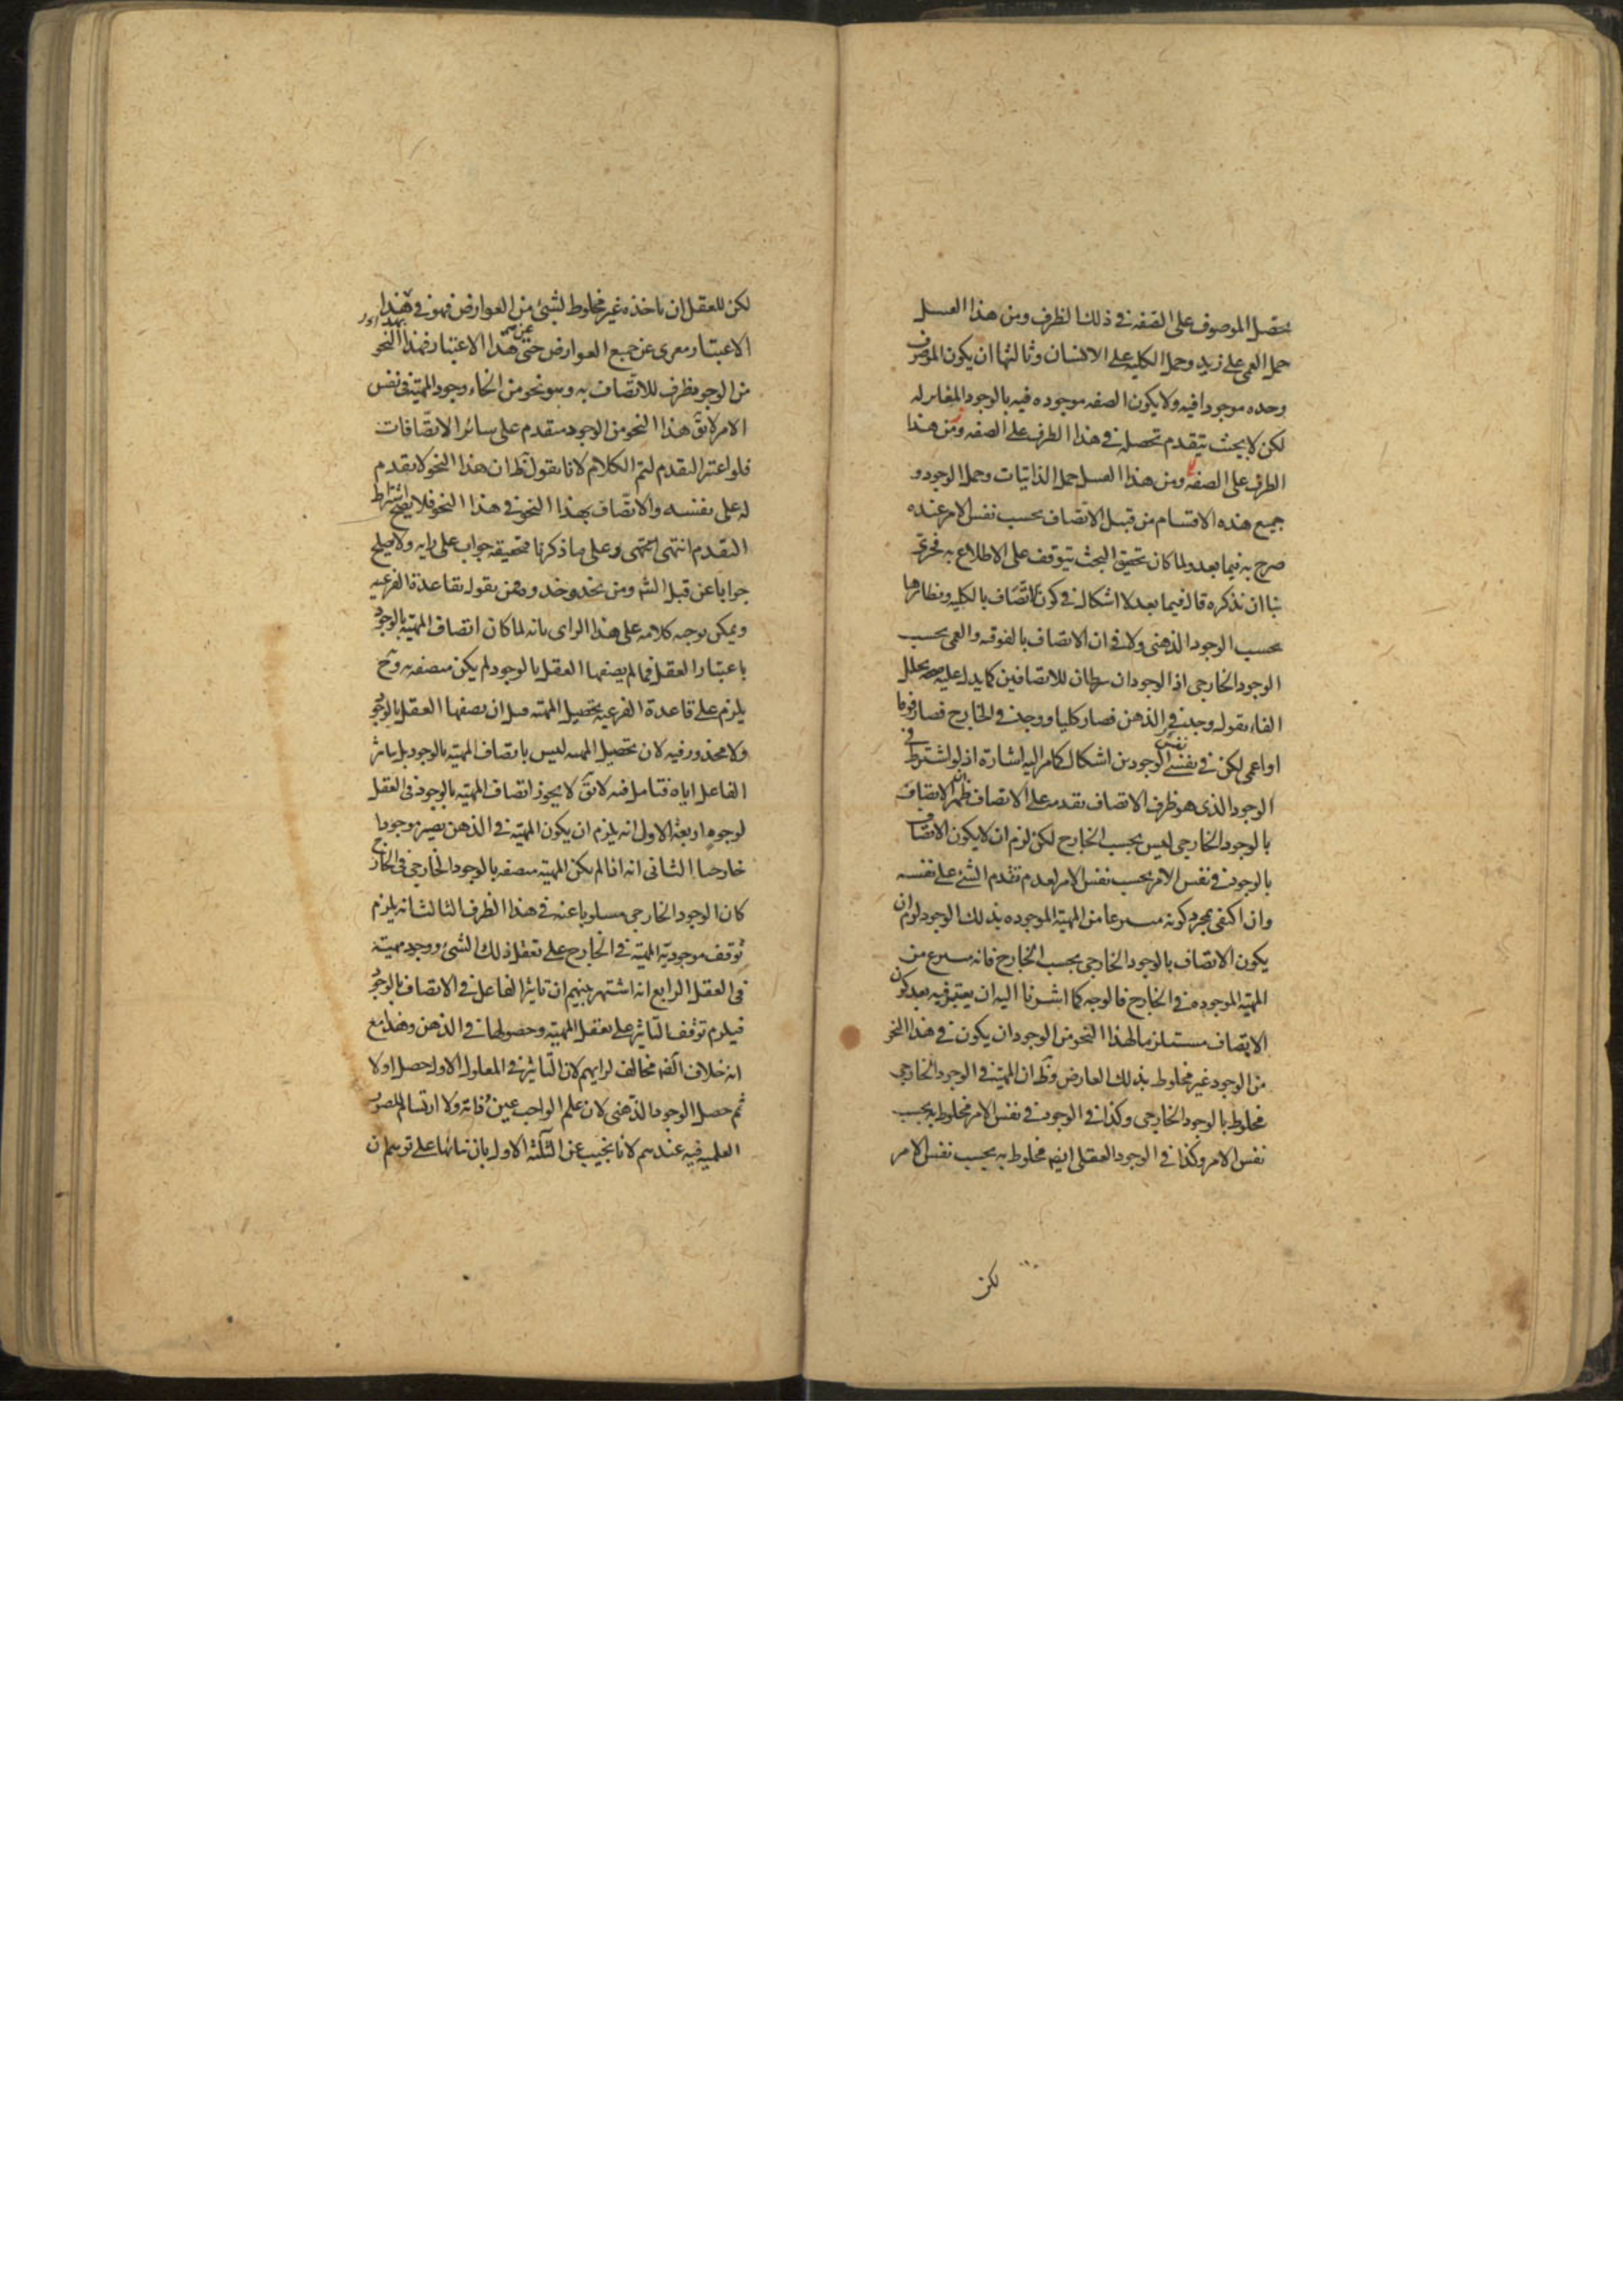 تحصل الموصوف على الصفه فى ذلك الظرف ومن هذا القبيل
حمل العمى على زيد وحمل الكليه على الانسان وثالثها ان يكون الموصوف
وحده موجودا فيه ولا يكون الصفه موجوده فيه بالوجود المغاير له
لكن لا بحيث يتقدم تحصله فى هذا الظرف على الصفه ومن هذا
الطرف على الصفه ومن هذا القبيل حمل الذاتيات وحمل الوجود و
جميع هذه الاقسام من قبيل الاتصاف بحسب نفس الامر عنده
صرح به فيما بعد ولما كان تحقيق البحث يتوقف على الاطلاع به فحرى
بنا ان نذكره قال فيما بعد لا اشكال فى كون الاتصاف بالكليه ونظائرها
بحسب الوجود الذهنى ولا فى ان الاتصاف بالفوقيه والعمى بحسب
الوجود الخارجى اذ الوجودان شرطان للاتصافين كما يدل عليه صحه تخلل
الفاء بقوله وجد فى الذهن فصار كليا ووجد فى الخارج فصار فوقا
او اعمى لكن فى نفس الوجودين اشكال كما مر اليه اشارة اذ لو اشترط فى
الوجود الذى هو ظرف الاتصاف تقدمه على الاتصاف ظهر ان الاتصاف
بالوجود الخارجى ليس بحسب الخارج لكن لزم ان لا يكون الاتصاف
بالوجود فى نفس الامر بحسب نفس الامر لعدم تقدم الشئ على نفسه
وان اكتفى بمجرد كونه منتزعا من المهيه الموجوده بذلك الوجود لزم ان
يكون الاتصاف بالوجود الخارجى بحسب الخارج فانه منتزع من
المهيه الموجوده فى الخارج فالوجه كما اشرنا اليه ان يعتبر فيه بعد كون
الاتصاف مستلزما لهذا النحو من الوجود ان يكون فى هذا النحو
من الوجود غير مخلوط بذلك العارض وظ ان المهيه فى الوجود الخارجى
مخلوط بالوجود الخارجى وكذا فى الوجود فى نفس الامر مخلوط به بحسب
نفس الامر وكذا فى الوجود العقلى ايضا مخلوط به بحسب نفس الامر
لكن
لكن للعقل ان ياخذه غير مخلوط لشئ من العوارض فهو فى هذا
الاعتبار معرى عن جميع العوارض حتى عن هذا الاعتبار فهذا النحو
من الوجود ظرف للاتصاف به وهو نحو من انحاء وجود المهيه فى نفس
الامر لا يق هذا النحو من الوجود متقدم على سائر الاتصافات
فلو اعتبر التقدم لتم الكلام لانا نقول ظ ان هذا النحو لا تقدم
له على نفسه والاتصاف بهذا النحو فى هذا النحو فلا يصح اشتراط
التقدم انتهى وعلى ما ذكرنا فتحقيقه جواب على رايه ولا يصلح
جوابا عن قبل الشيخ ومن يحذو حذوه ممن يقول بقاعدة الفرعيه
ويمكن توجيه كلامه على هذا الراى بانه لما كان اتصاف المهيه بالوجود
باعتبار العقل فما لم يصفها العقل بالوجود لم يكن متصفه به وح
يلزم على قاعدة الفرعيه تحصيل المهيه قبل ان يصفها العقل بالوجود
ولا محذور فيه لان تحصيل المهيه ليس باتصاف المهيه بالوجود بل بتاثير
الفاعل اياه فتامل فيه لا يق لا يجوز اتصاف المهيه بالوجود فى العقل
لوجوه اربعة الاول انه يلزم ان يكون المهيه فى الذهن يصير موجودا
خارجيا الثانى انه اذا لم يكن المهيه متصفه بالوجود الخارجى فى الخارج
كان الوجود الخارجى مسلوبا عنه فى هذا الظرف الثالث انه يلزم
توقف موجودية المهيه فى الخارج على تعقل ذلك الشئ ووجود مهيته
فى العقل الرابع انه اشتهر بينهم ان تاثير الفاعل فى الاتصاف بالوجود
فيلزم توقف التاثير على تعقل المهيه وحصولها فى الذهن وهذا مع
انه خلاف مخالف لرايهم لان التاثير فى المعلول الاول حصل اولا
ثم حصل الوجود الذهنى لان علم الواجب عين ذاته ولا ارتسام للصور
العلميه فيه عندهم لانا نجيب عن الثلثه الاول بان بنائها على توهم ان